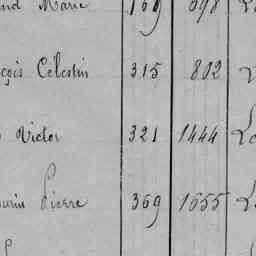 Marie 169 698
çois Célestin 315 802
Victor 321 1444
urin Pierre 369 1655